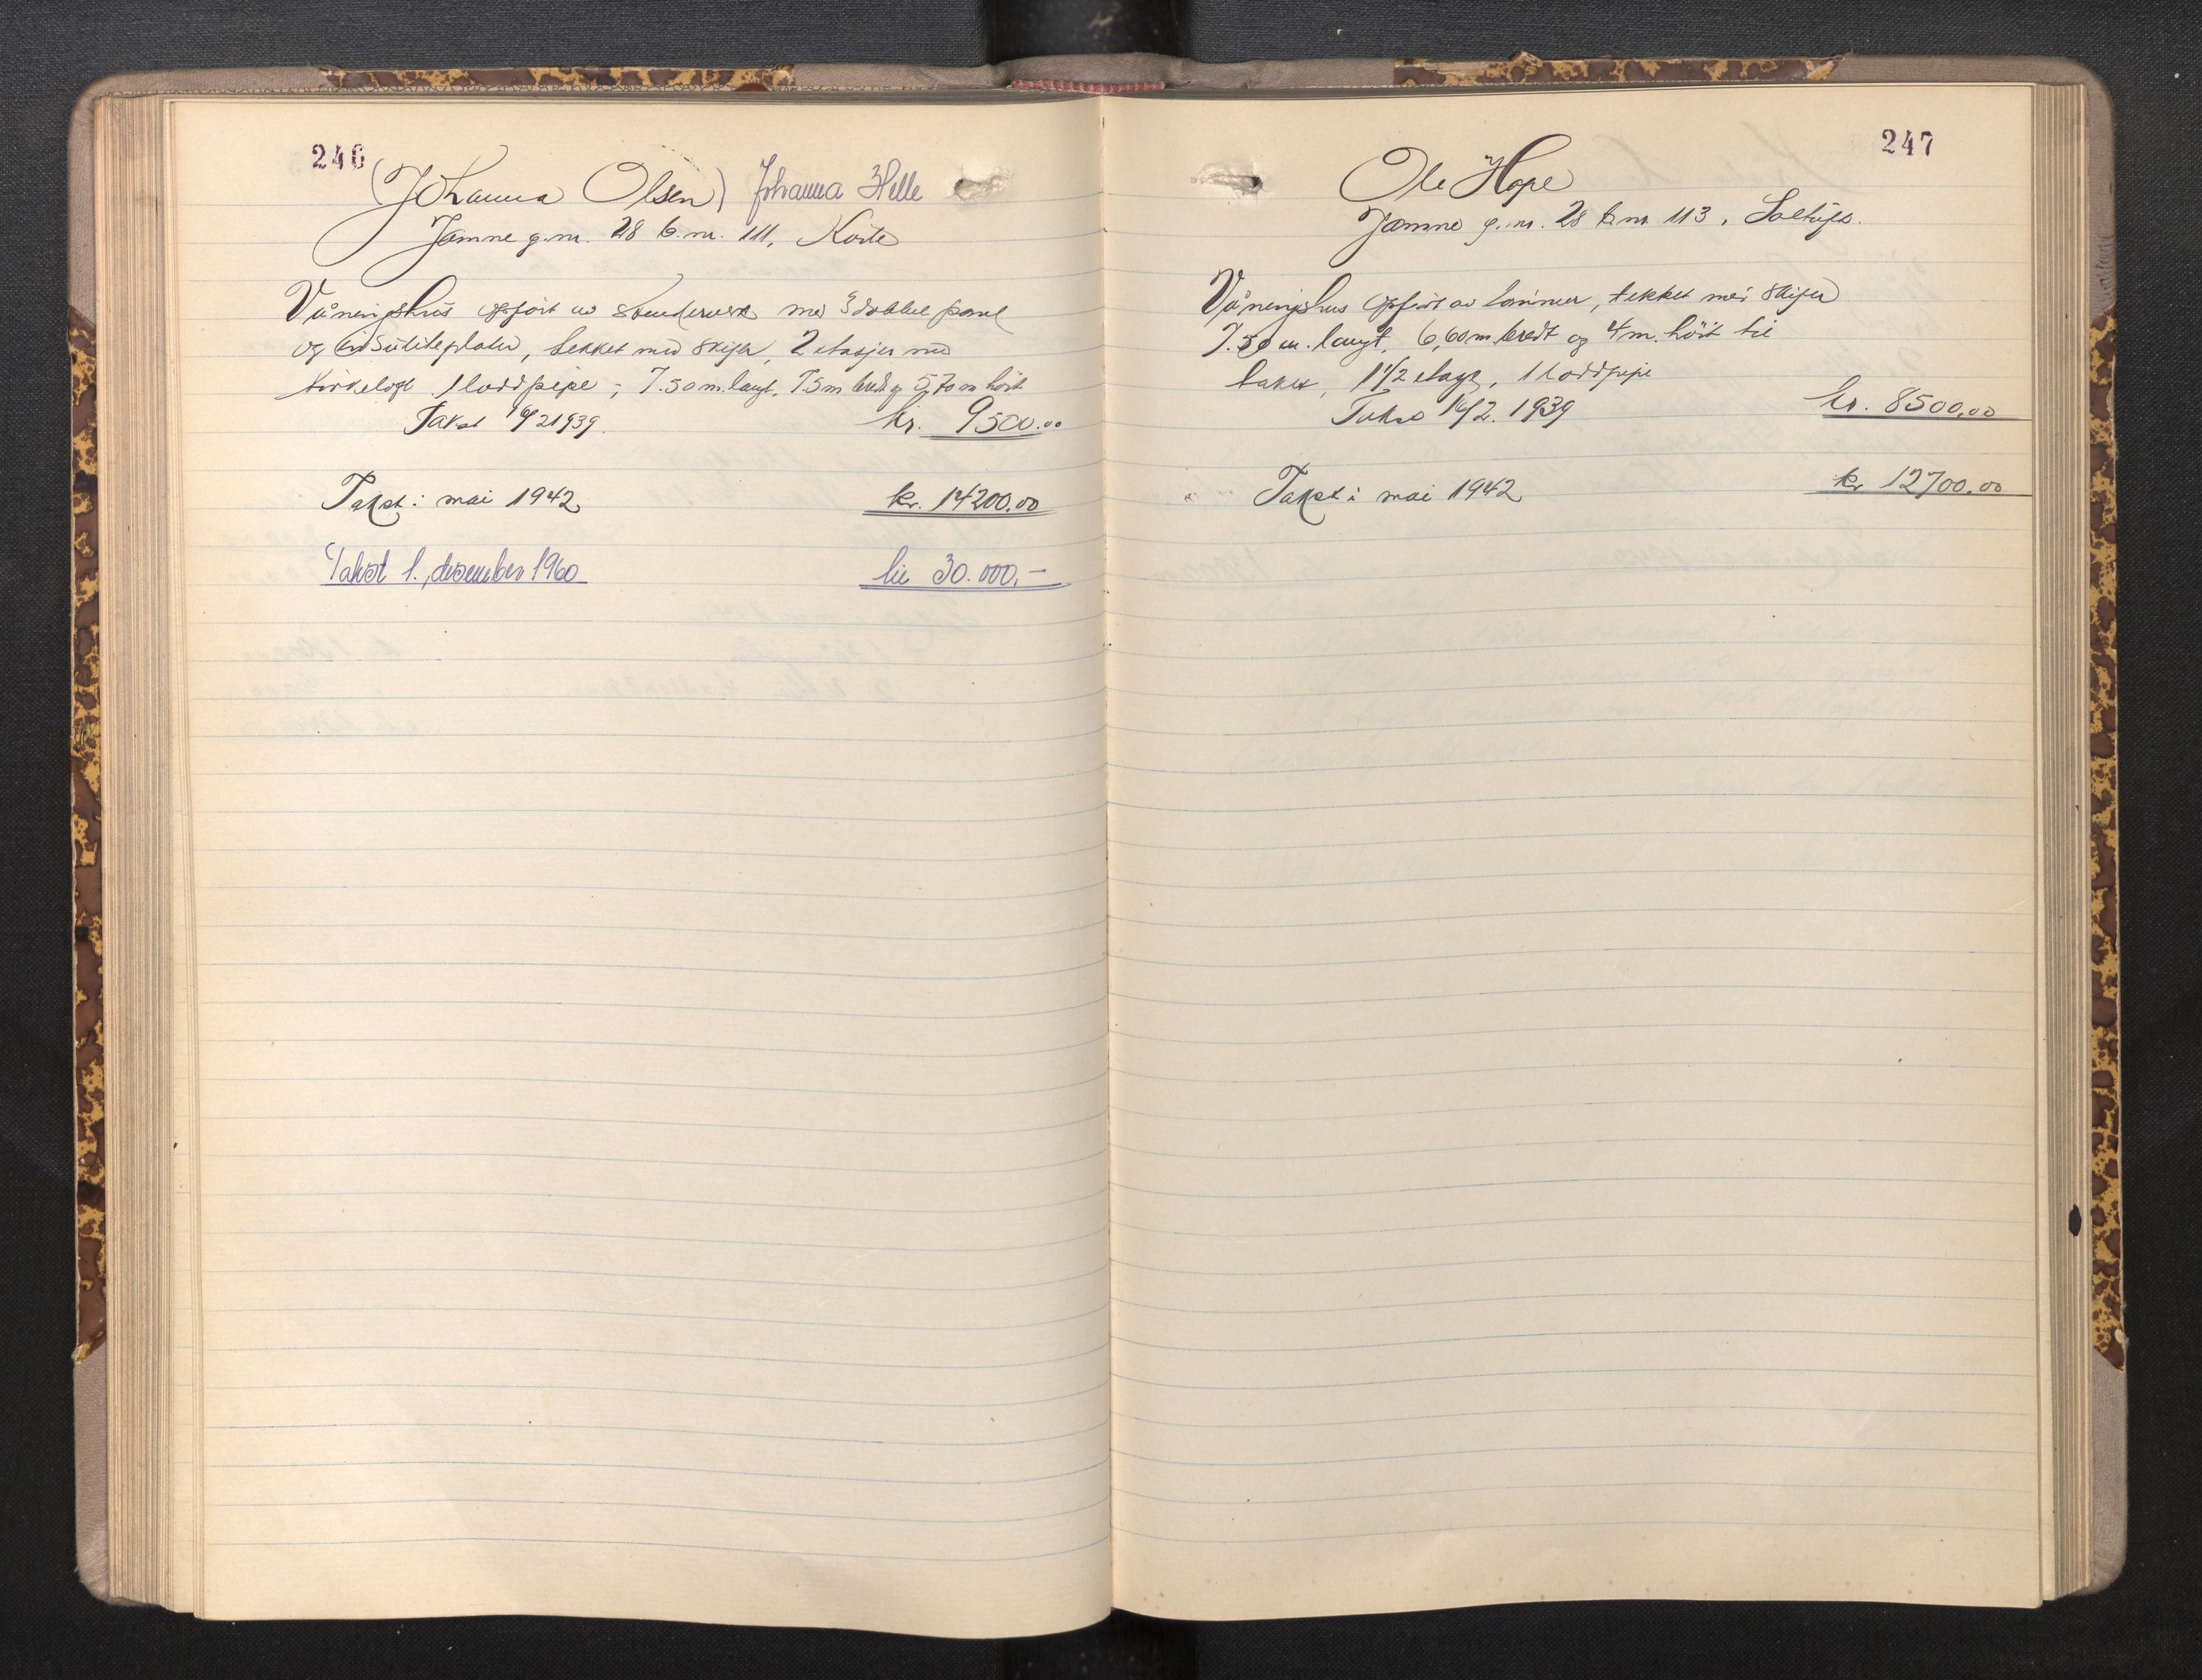 246
(Johanna Olsen) Johanna Helle
Jamne g.nr. 28 b.nr. 111,
Våningshus opført av stenderverk med 3 dobbel panel
og insuliteplater, tekket med skifer, 2 etasjer med
1 loddpipe; 7.50 m. langt, 7.5 m bredt og 5,70 m höit
Takst 16/2 1939. kr. 9500.00
Takst: mai 1942 kr. 14200.00
Takst 1. desember 1960 kr 30.000,-
247
Ole Hope
Jamne g.nr. 28 b.nr 113, Soltun.
Våningshus opført av tømmer, tekket med skifer
7.50 m. langt, 6,60 m. bredt og 4 m. höit til
taket, 1 1/2 etage, 1 loddpipe
Takst 16/2. 1939 kr. 8500,00
Takst: mai 1942 kr 12700.00